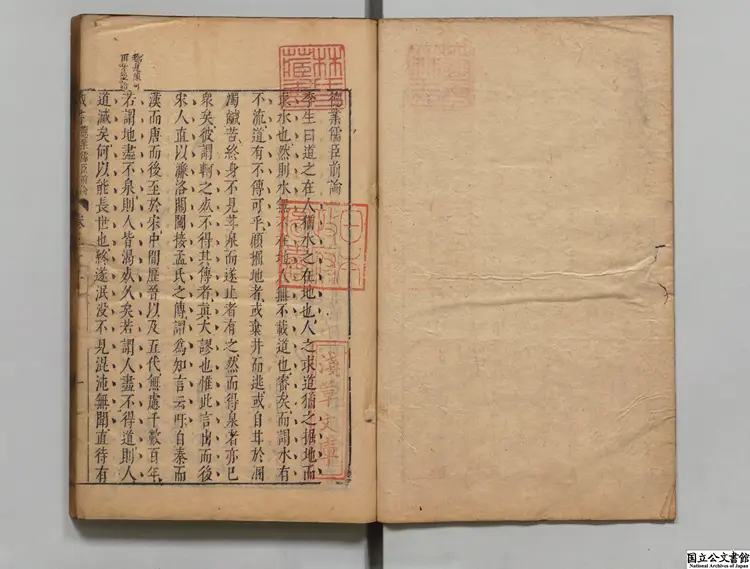 德業儒臣前論
李生曰道之在人猶水之在地也人之求道猶之掘地而
求水也然則水無不在地人無不載道也審矣而謂水有
不流道有不傳可乎顧掘地者或棄井而逃或自甘於溷
濁鹹苦終身不見甘泉而遂止者有之然而得泉者亦已
衆矣彼謂軻之死不得其傳者真大謬也惟此言出而後
宋人直以濂洛關閩接孟氏之傳謂為知言云吁自秦而
漢而唐而後至於宋中間歷晉以及五代無慮千數百年
若謂地盡不泉則人皆渴死久矣若謂人盡不得道則人
道滅矣何以能長世也終遂泯沒不見混沌無聞直待有
藏書德業儒臣前論
林氏藏書
日本政府圖書
淺草文庫
国立公文書館
National Archives of Japan